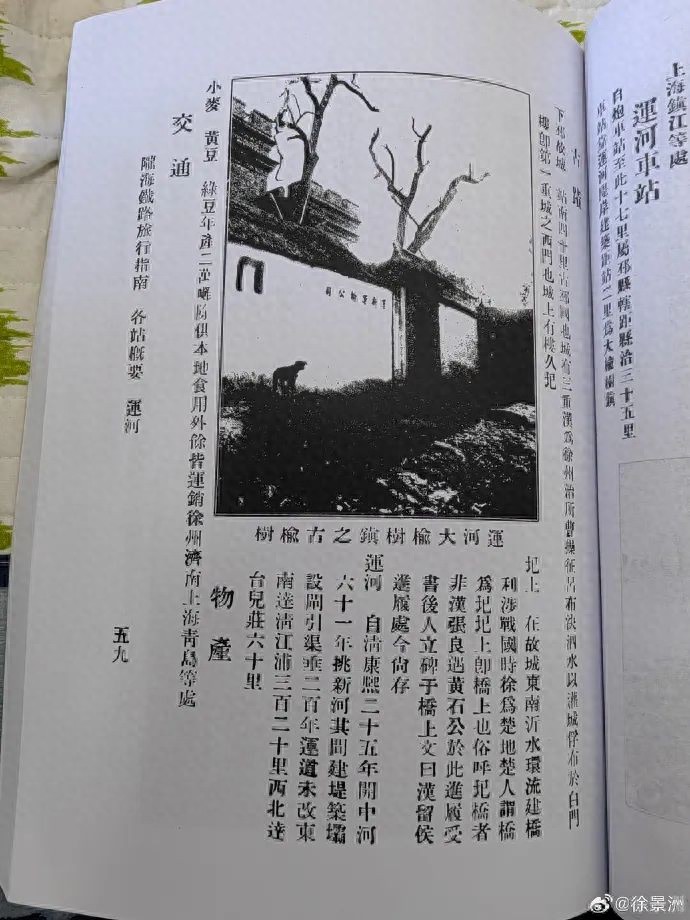 上海鎮江等處
運河車站
自炮車站至此十七里屬邳縣轄距縣治三十五里
車站靠運河堤岸建築距站二里爲大榆樹鎮
古蹟
下邳故城 站南四十里古邳國也城有三重漢爲徐州治所曹操征呂布決泗水以灌城俘布於白門
樓卽第一重城之西門也城上有樓久圮
漢新息馬公祠
運河大榆樹鎮之古榆樹
圯上 在故城東南沂水環流建橋
利涉戰國時徐爲楚地楚人謂橋
爲圯圯上卽橋上也俗呼圯橋者
非漢張良遇黃石公於此進履受
書後人立碑于橋上文曰漢留侯
進履處今尙存
運河 自清康熙二十五年開中河
六十一年挑新河其間建堤築壩
設閘引渠垂二百年運道未改東
南達清江浦三百二十里西北達
台兒莊六十里
物產
小麥 黃豆 綠豆年產二萬噸除供本地食用外餘皆運銷徐州濟南上海青島等處
交通
隴海鐵路旅行指南 各站概要 運河
五九
@徐景洲